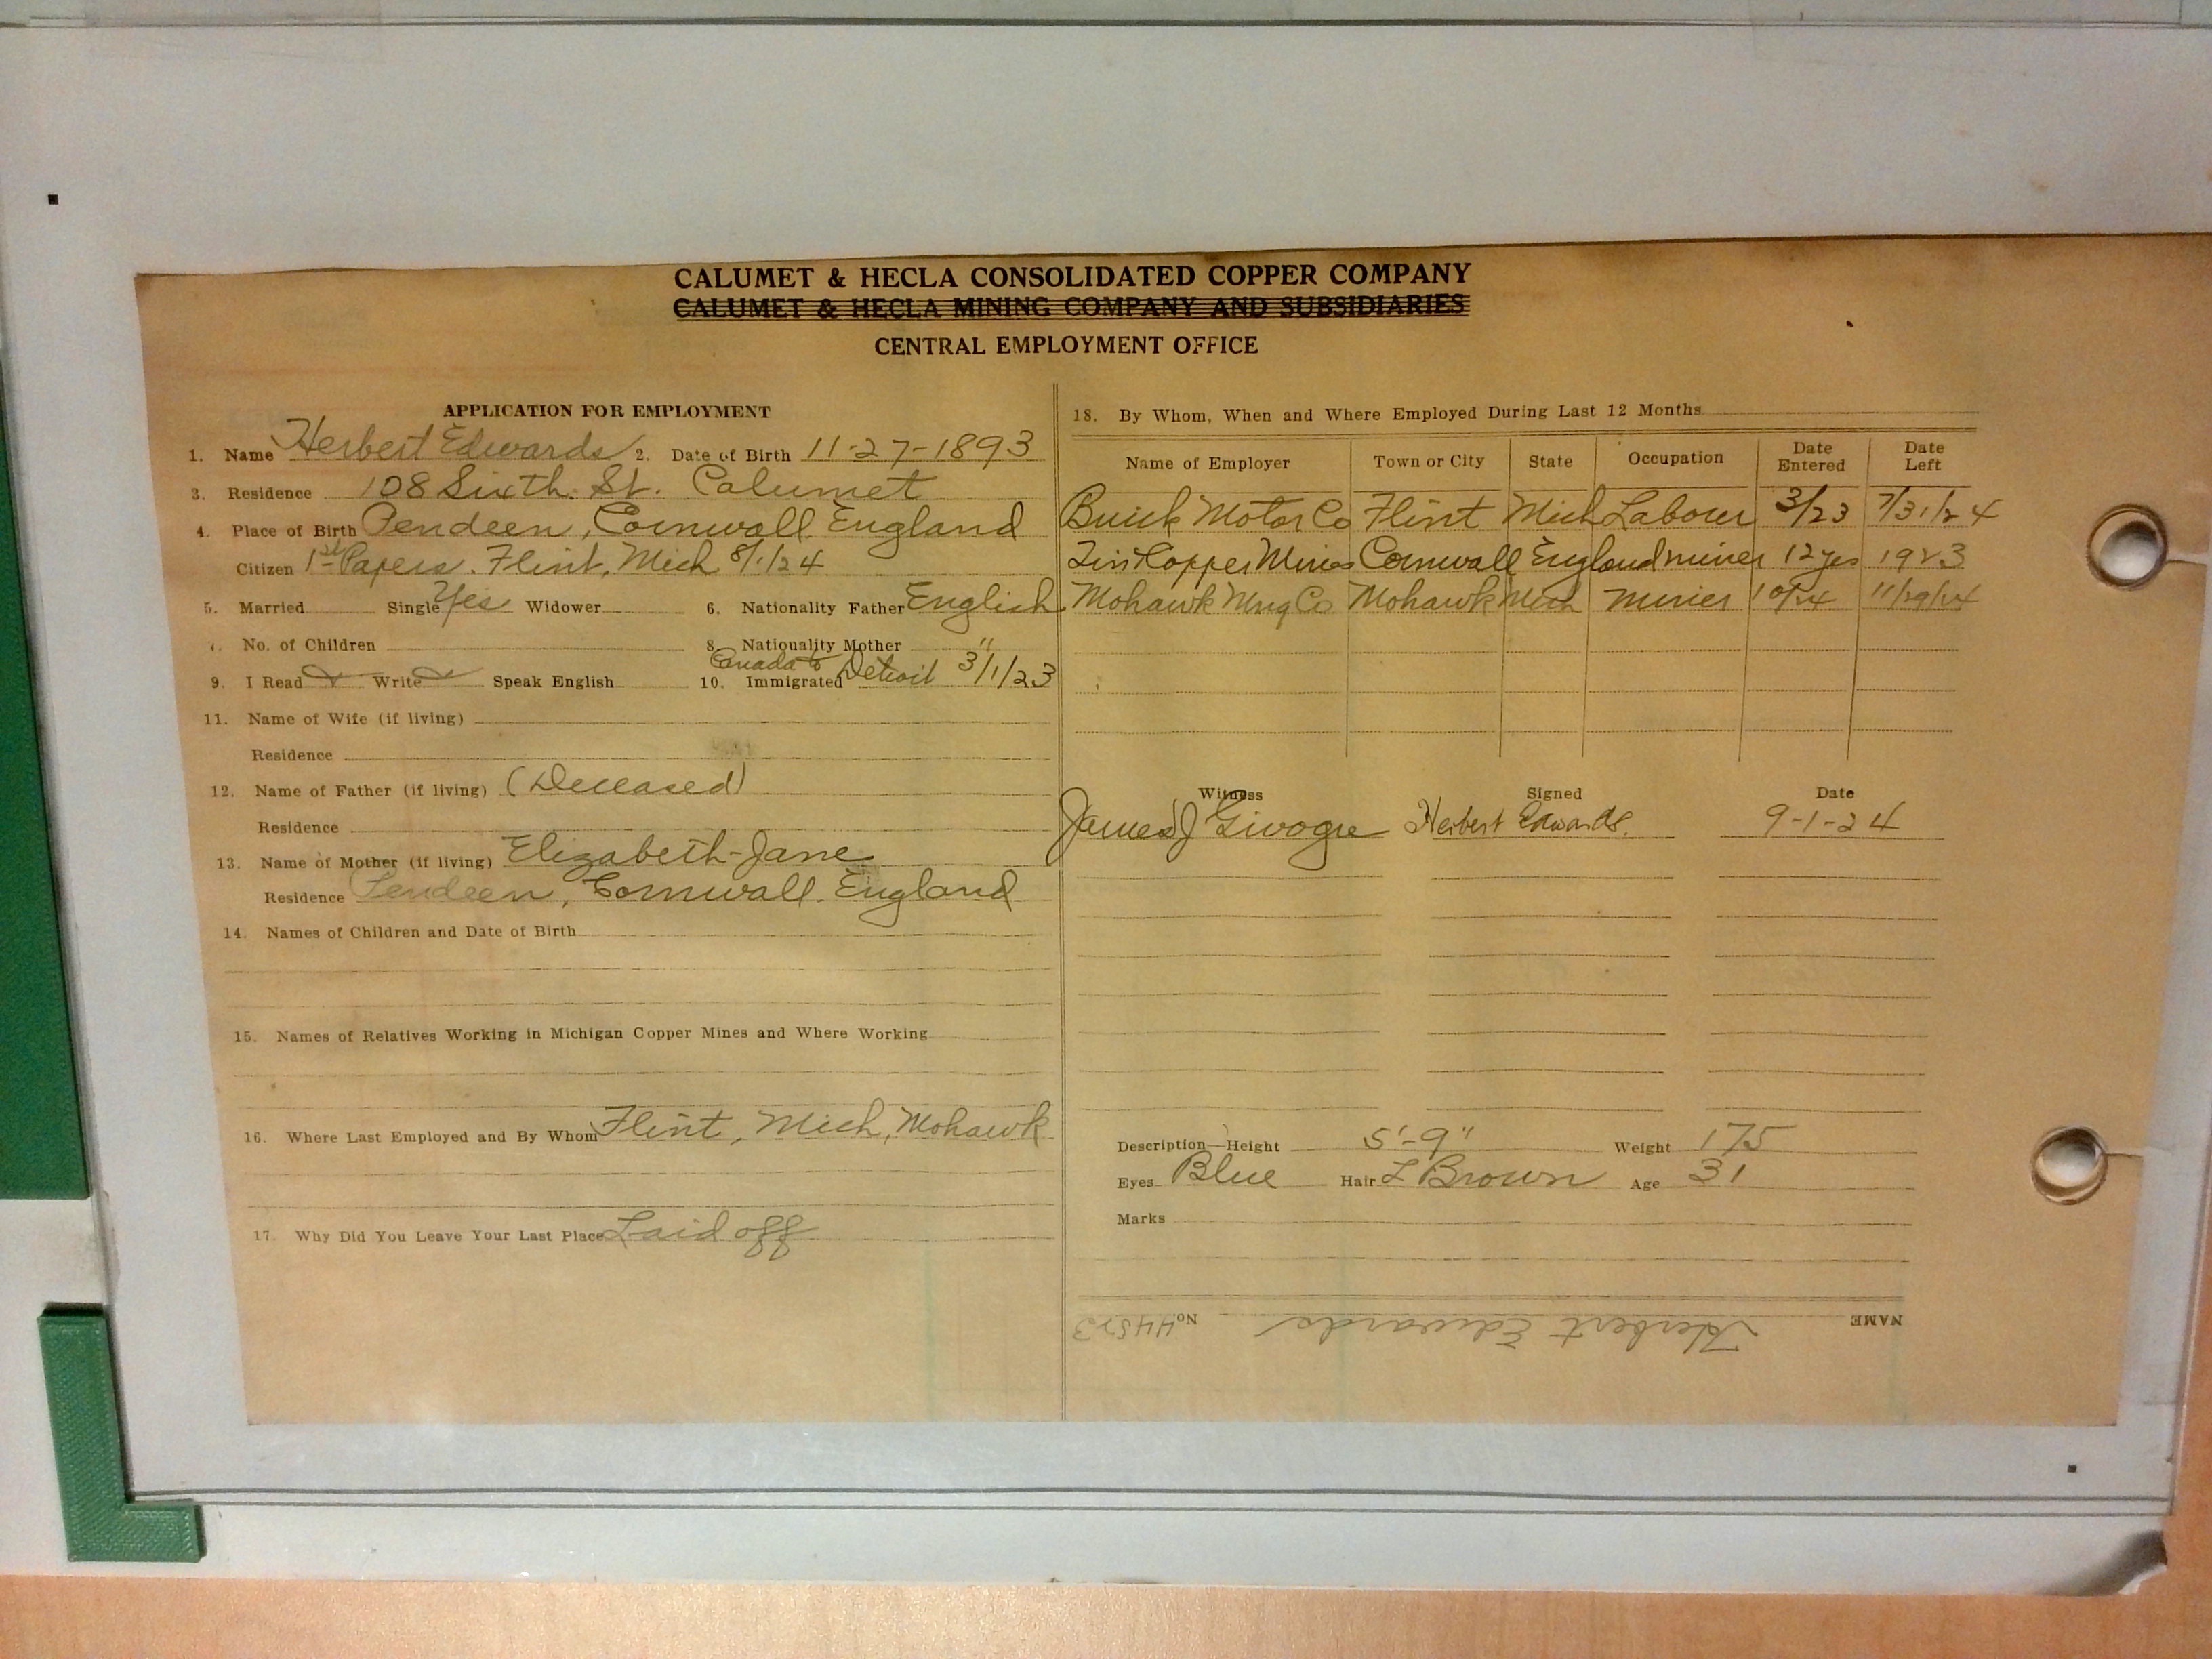 CALUMET & HECLA CONSOLIDATED COPPER COMPANY
CALUMET & HECLA MINING COMPANY AND SUBSIDIARIES
CENTRAL EMPLOYMENT OFFICE
APPLICATION FOR EMPLOYMENT
1. Name Herbert Edwards 2. Date of Birth 11-27-1893
3. Residence 108 Sixth. St. Calumet
4. Place of Birth Pendeen, Cornwall England
Citizen 1st Papers. Flint, Mich 8/1/24
5. Married Single Yes Widower 6. Nationality Father English
7. No. of Children 8. Nationality Mother "
9. I Read Write Speak English 10. Immigrated Canada to Detroit 3/1/23
11. Name of Wife (if living)
Residence
12. Name of Father (if living) (Deceased)
Residence
13. Name of Mother (if living) Elizabeth-Jane
Residence Pendeen, Cornwall. England
14. Names of Children and Date of Birth
15. Names of Relatives Working in Michigan Copper Mines and Where Working
16. Where Last Employed and By Whom Flint, Mich, Mohawk
17. Why Did You Leave Your Last Place Laid off
18. By Whom, When and Where Employed During Last 12 Months
Name of Employer Town or City State Occupation Date Entered Date Left
Buick Motor Co Flint Mich Labourer 3/23 7/31/24
Tin Copper Mines Cornwall England miner 12 yrs 1923
Mohawk Mng Co Mohawk Mich Miner 10/24 11/29/24
Witness Signed Date
James J Herbert Edwards. 9-1-24
Description—Height 5'-9" Weight 175
Eyes Blue Hair L Brown Age 31
Marks
NAME Herbert Edwards No. 44523